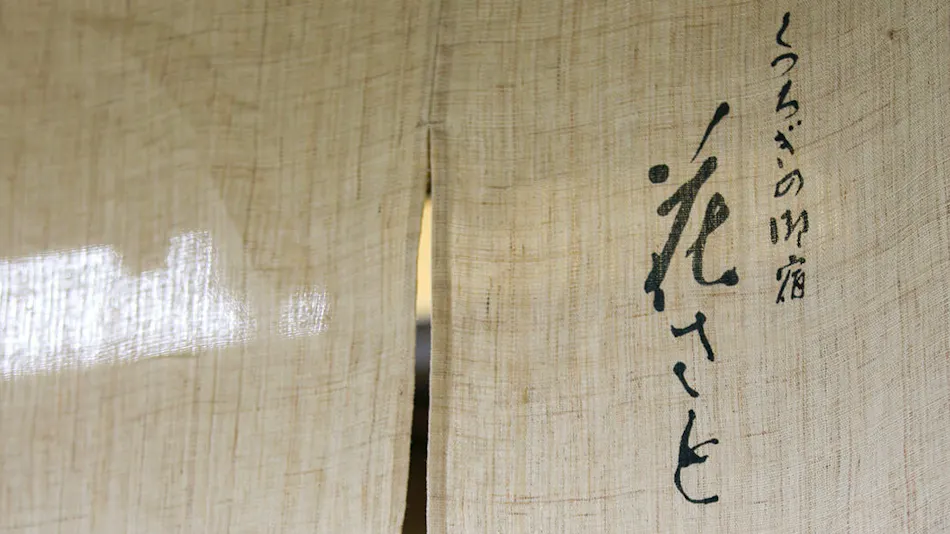 くつろぎの御宿
花さと